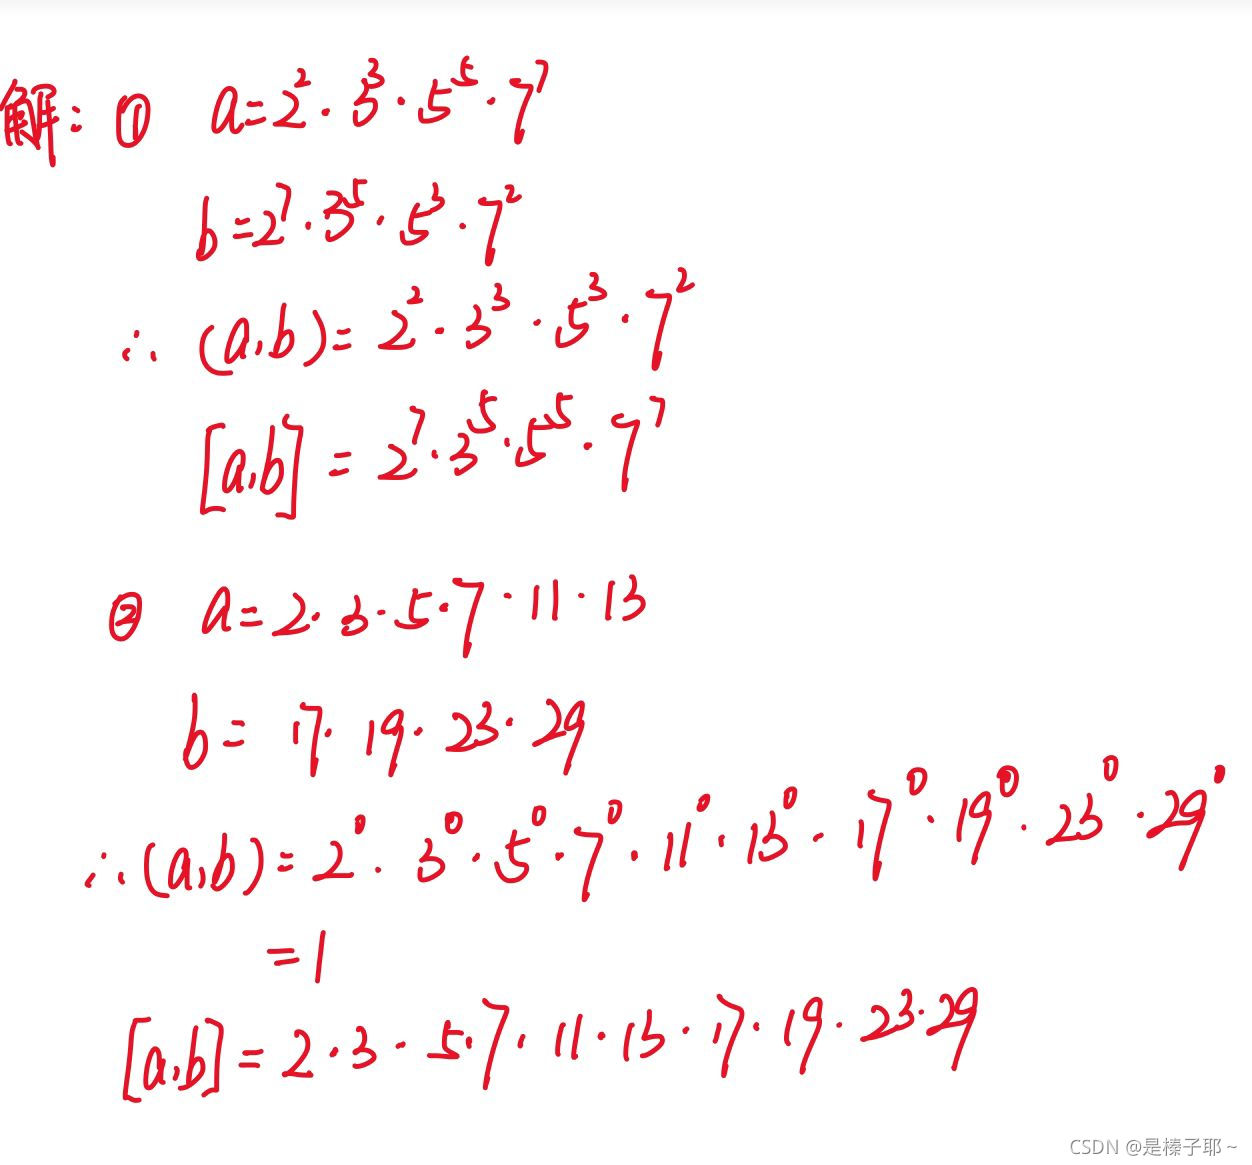 解：① a=2²·3³·5⁵·7⁷
b=2⁷·3⁵·5³·7²
∴ (a,b)=2²·3³·5³·7²
[a,b]=2⁷·3⁵·5⁵·7⁷
② a=2·3·5·7·11·13
b=17·19·23·29
∴(a,b)=2⁰·3⁰·5⁰·7⁰·11⁰·13⁰·17⁰·19⁰·23⁰·29⁰
=1
[a,b]=2·3·5·7·11·13·17·19·23·29
CSDN @是榛子耶～